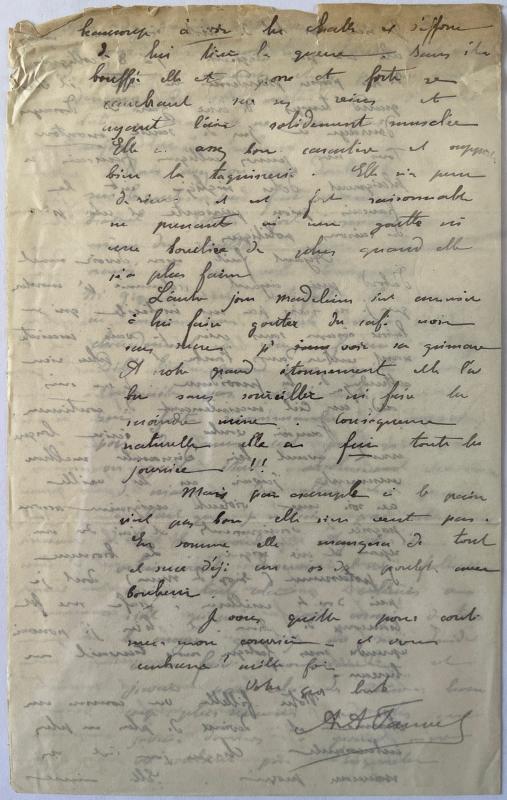 beaucoup à voir les chats et s'efforce
de lui tirer la queue. Sans être
bouffie elle est grosse et forte se
cambrant sur ses reins et
ayant l'air solidement musclée
Elle a assez bon caractère et
bien la taquinerie. Elle n'a peur
de rien et est fort raisonnable
ne prenant ni une goutte ni
une bouchée de plus quand elle
n'a plus faim
L'autre jour Madeleine
à lui faire goûter du café noir
sans sucre pr voir sa grimace
A notre grand étonnement elle l'a
bu sans sourciller ni faire la
moindre mine. Conséquence
naturelle elle a toute la
journée!!
Mais par exemple si le pain
n'est pas bon elle n'en veut pas.
En somme elle mangera de tout
et suce déjà un os de poulet avec
bonheur.
Je vous quitte pour
mon courrier et vous
embrasse mille fois
Votre